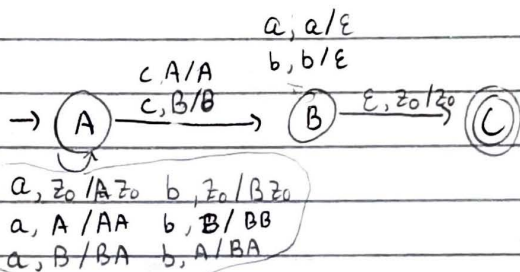 a, a/ε
b, b/ε
c, A/A
c, B/B
→ A B ε, z₀/z₀ C
a, z₀/Az₀ b, z₀/Bz₀
a, A/AA b, B/BB
a, B/BA b, A/BA